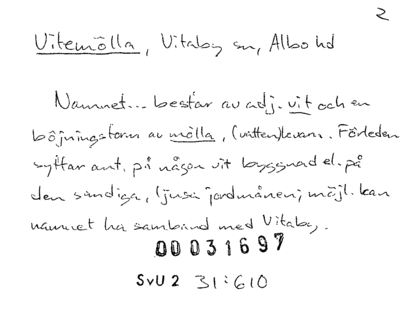 2
Vitemölla, Vitaby sn, Albo hd
Namnet... består av adj. vit och en
böjningsform av mölla, (vatten)kvarn. Förleden
syftar ant. på någon vit byggnad el. på
den sandiga, ljusa jordmånen; möjl. kan
namnet ha samband med Vitaby.
00031697
SvU 2 31:610